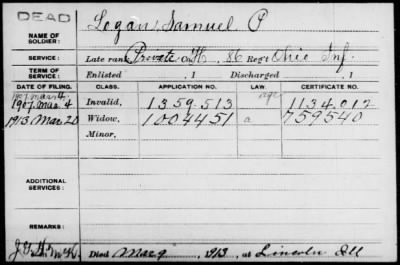 DEAD
NAME OF SOLDIER: Logan, Samuel P
SERVICE: Late rank Private Co. H, 86 Reg't Ohio Inf.
TERM OF SERVICE: Enlisted , 1 Discharged , 1
DATE OF FILING. CLASS. APPLICATION NO. LAW. CERTIFICATE NO.
1907 Mar 4
1907 Mar 4 Invalid, 1359.513 1134.012
1913 Mar 20 Widow, 1004451 a 759540
Minor,
ADDITIONAL SERVICES:
REMARKS:
Died Mar 9, 1913, at Lincoln Ill